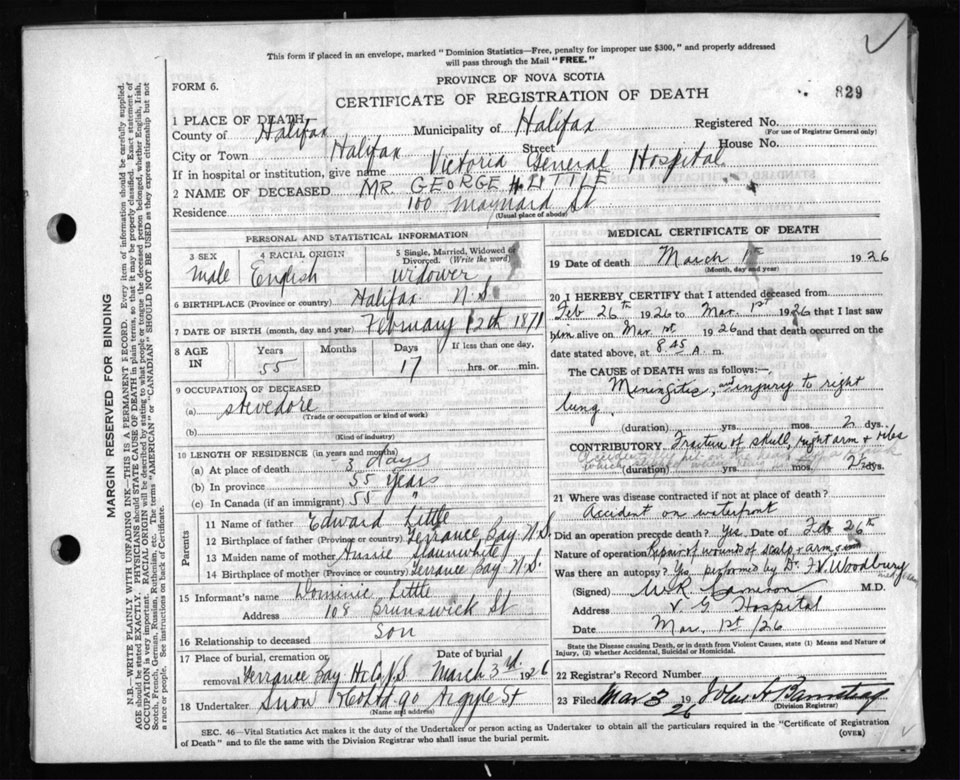 This form if placed in an envelope, marked "Dominion Statistics—Free, penalty for improper use $300," and properly addressed
will pass through the Mail "FREE."
PROVINCE OF NOVA SCOTIA
FORM 6.
CERTIFICATE OF REGISTRATION OF DEATH
829
1 PLACE OF DEATH
County of Halifax Municipality of Halifax Registered No.
(For use of Registrar General only)
City or Town Halifax Street House No.
If in hospital or institution, give name Victoria General Hospital
2 NAME OF DECEASED MR. GEORGE H LITTLE
Residence 100 Maynard St
(Usual place of abode)
PERSONAL AND STATISTICAL INFORMATION
3 SEX 4 RACIAL ORIGIN 5 Single, Married, Widowed or
Divorced. (Write the word)
Male English widower
6 BIRTHPLACE (Province or country) Halifax N.S.
7 DATE OF BIRTH (month, day and year) February 12th 1871
8 AGE IN Years Months Days If less than one day,
55 17 hrs. or min.
9 OCCUPATION OF DECEASED
(a) stevedore
(Trade or occupation or kind of work)
(b)
(Kind of industry)
10 LENGTH OF RESIDENCE (in years and months)
(a) At place of death 3 days
(b) In province 55 years
(c) In Canada (if an immigrant) 55 "
Parents
11 Name of father Edward Little
12 Birthplace of father (Province or country) Terrance Bay N.S.
13 Maiden name of mother Annie Slaunwhite
14 Birthplace of mother (Province or country) Terrance Bay N.S.
15 Informant's name Dominic Little
Address 108 Brunswick St
16 Relationship to deceased son
17 Place of burial, cremation or removal Date of burial
Terrance Bay Hx Co N.S. March 3rd. 1926
18 Undertaker Snow & Co Ltd. 90 Argyle St
(Name and address)
MEDICAL CERTIFICATE OF DEATH
19 Date of death March 1st 1926
(Month, day and year)
20 I HEREBY CERTIFY that I attended deceased from
Feb 26th 1926 to Mar. 1st 1926 that I last saw
him alive on Mar 1st 1926 and that death occurred on the
date stated above, at 8 45 A. m.
The CAUSE of DEATH was as follows:—
Meningitis, and injury to right
lung
(duration) yrs. mos. 2 dys.
CONTRIBUTORY Fracture of skull, right arm & ribs
(duration) yrs. mos. 2 dys.
21 Where was disease contracted if not at place of death?
Accident on waterfront
Did an operation precede death? Yes. Date of Feb 26th
Nature of operation Repair of wound of scalp & arm
Was there an autopsy? Yes, performed by Dr. F.V. Woodbury
(Signed) W.R. Jamieson M.D.
Address V G Hospital
Date Mar. 1st/26
State the Disease causing Death, or in death from violent causes, state (1) Means and Nature of
Injury, (2) whether Accidental, Suicidal or Homicidal.
22 Registrar's Record Number
23 Filed Mar 3 1926 John A
(Division Registrar)
SEC. 46—Vital Statistics Act makes it the duty of the Undertaker or person acting as Undertaker to obtain all the particulars required in the "Certificate of Registration
of Death" and to file the same with the Division Registrar who shall issue the burial permit.
(OVER)
MARGIN RESERVED FOR BINDING
N.B.—WRITE PLAINLY WITH UNFADING INK—THIS IS A PERMANENT RECORD. Every item of information should be carefully supplied.
AGE should be stated EXACTLY. PHYSICIANS should STATE CAUSE OF DEATH in plain terms, so that it may be properly classified. Exact statement of
OCCUPATION is very important. RACIAL ORIGIN will be described by stating to what people or tongue the deceased person belonged, whether English, Irish,
Scotch, French, German, Russian, Ruthenian, etc. The terms "AMERICAN" or "CANADIAN" SHOULD NOT BE USED as they express citizenship but not
a race or people. See instructions on back of Certificate.